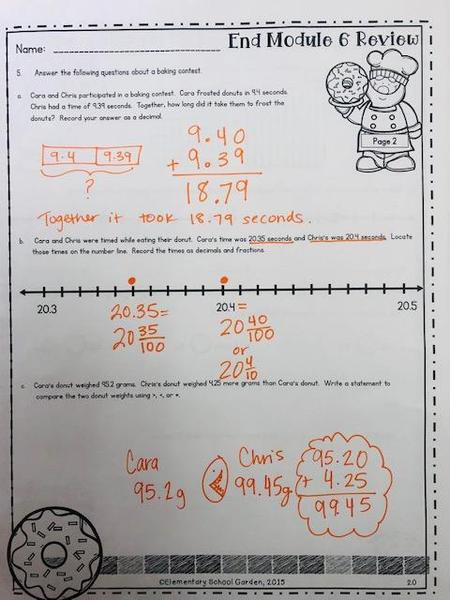 End Module 6 Review
Name:
5. Answer the following questions about a baking contest.
a. Cara and Chris participated in a baking contest. Cara frosted donuts in 9.4 seconds.
Chris had a time of 9.39 seconds. Together, how long did it take them to frost the
donuts? Record your answer as a decimal.
Page 2
9.40
9.4 9.39
+ 9.39
?
18.79
Together it took 18.79 seconds.
b. Cara and Chris were timed while eating their donut. Cara's time was 20.35 seconds and Chris's was 20.4 seconds. Locate
those times on the number line. Record the times as decimals and fractions.
20.3 20.4 = 20.5
20.35 =
20 35/100
20 40/100
or
20 4/10
c. Cara's donut weighed 95.2 grams. Chris's donut weighed 4.25 more grams than Cara's donut. Write a statement to
compare the two donut weights using >, <, or =.
Cara < Chris
95.2g 99.45g
95.20
+ 4.25
9945
©Elementary School Garden, 2015
20